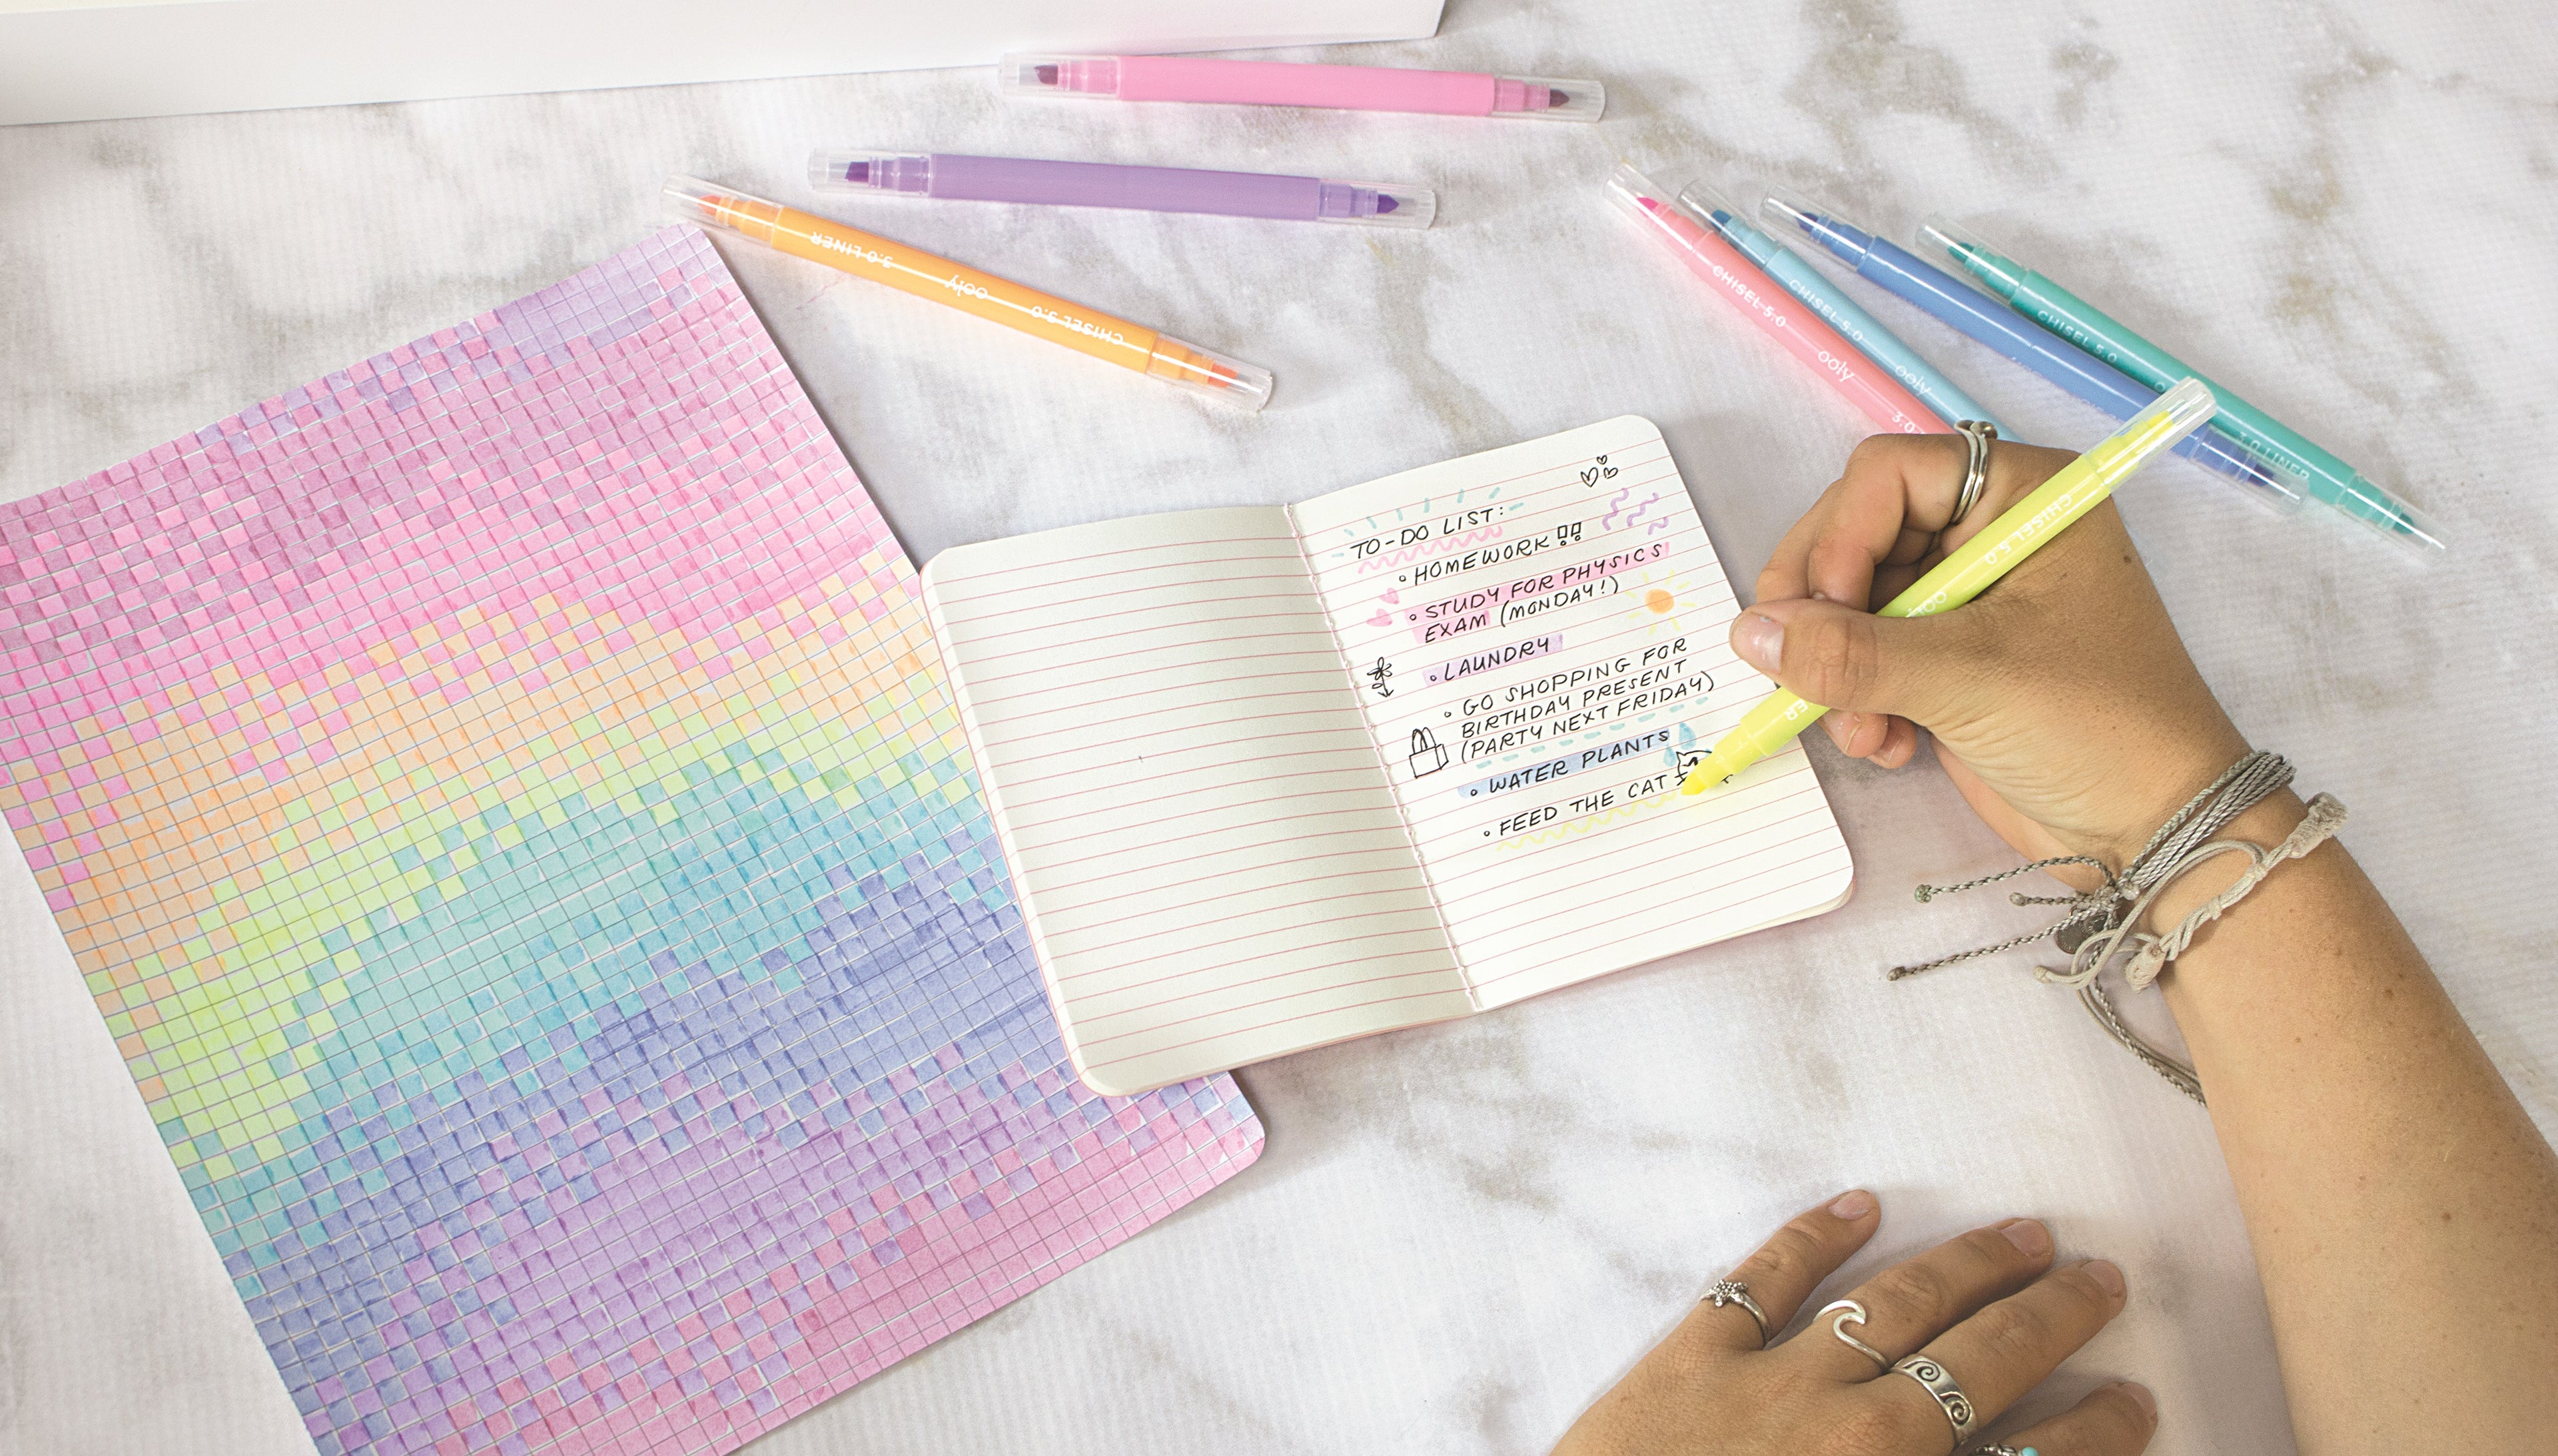 3.0 LINER ooly CHISEL 5.0
CHISEL 5.0 ooly 3.0
CHISEL 5.0 ooly
CHISEL 5.0
3.0 LINER
TO-DO LIST:
• HOMEWORK !!
• STUDY FOR PHYSICS
EXAM (MONDAY!)
• LAUNDRY
• GO SHOPPING FOR
BIRTHDAY PRESENT
(PARTY NEXT FRIDAY)
• WATER PLANTS
• FEED THE CAT
CHISEL 5.0